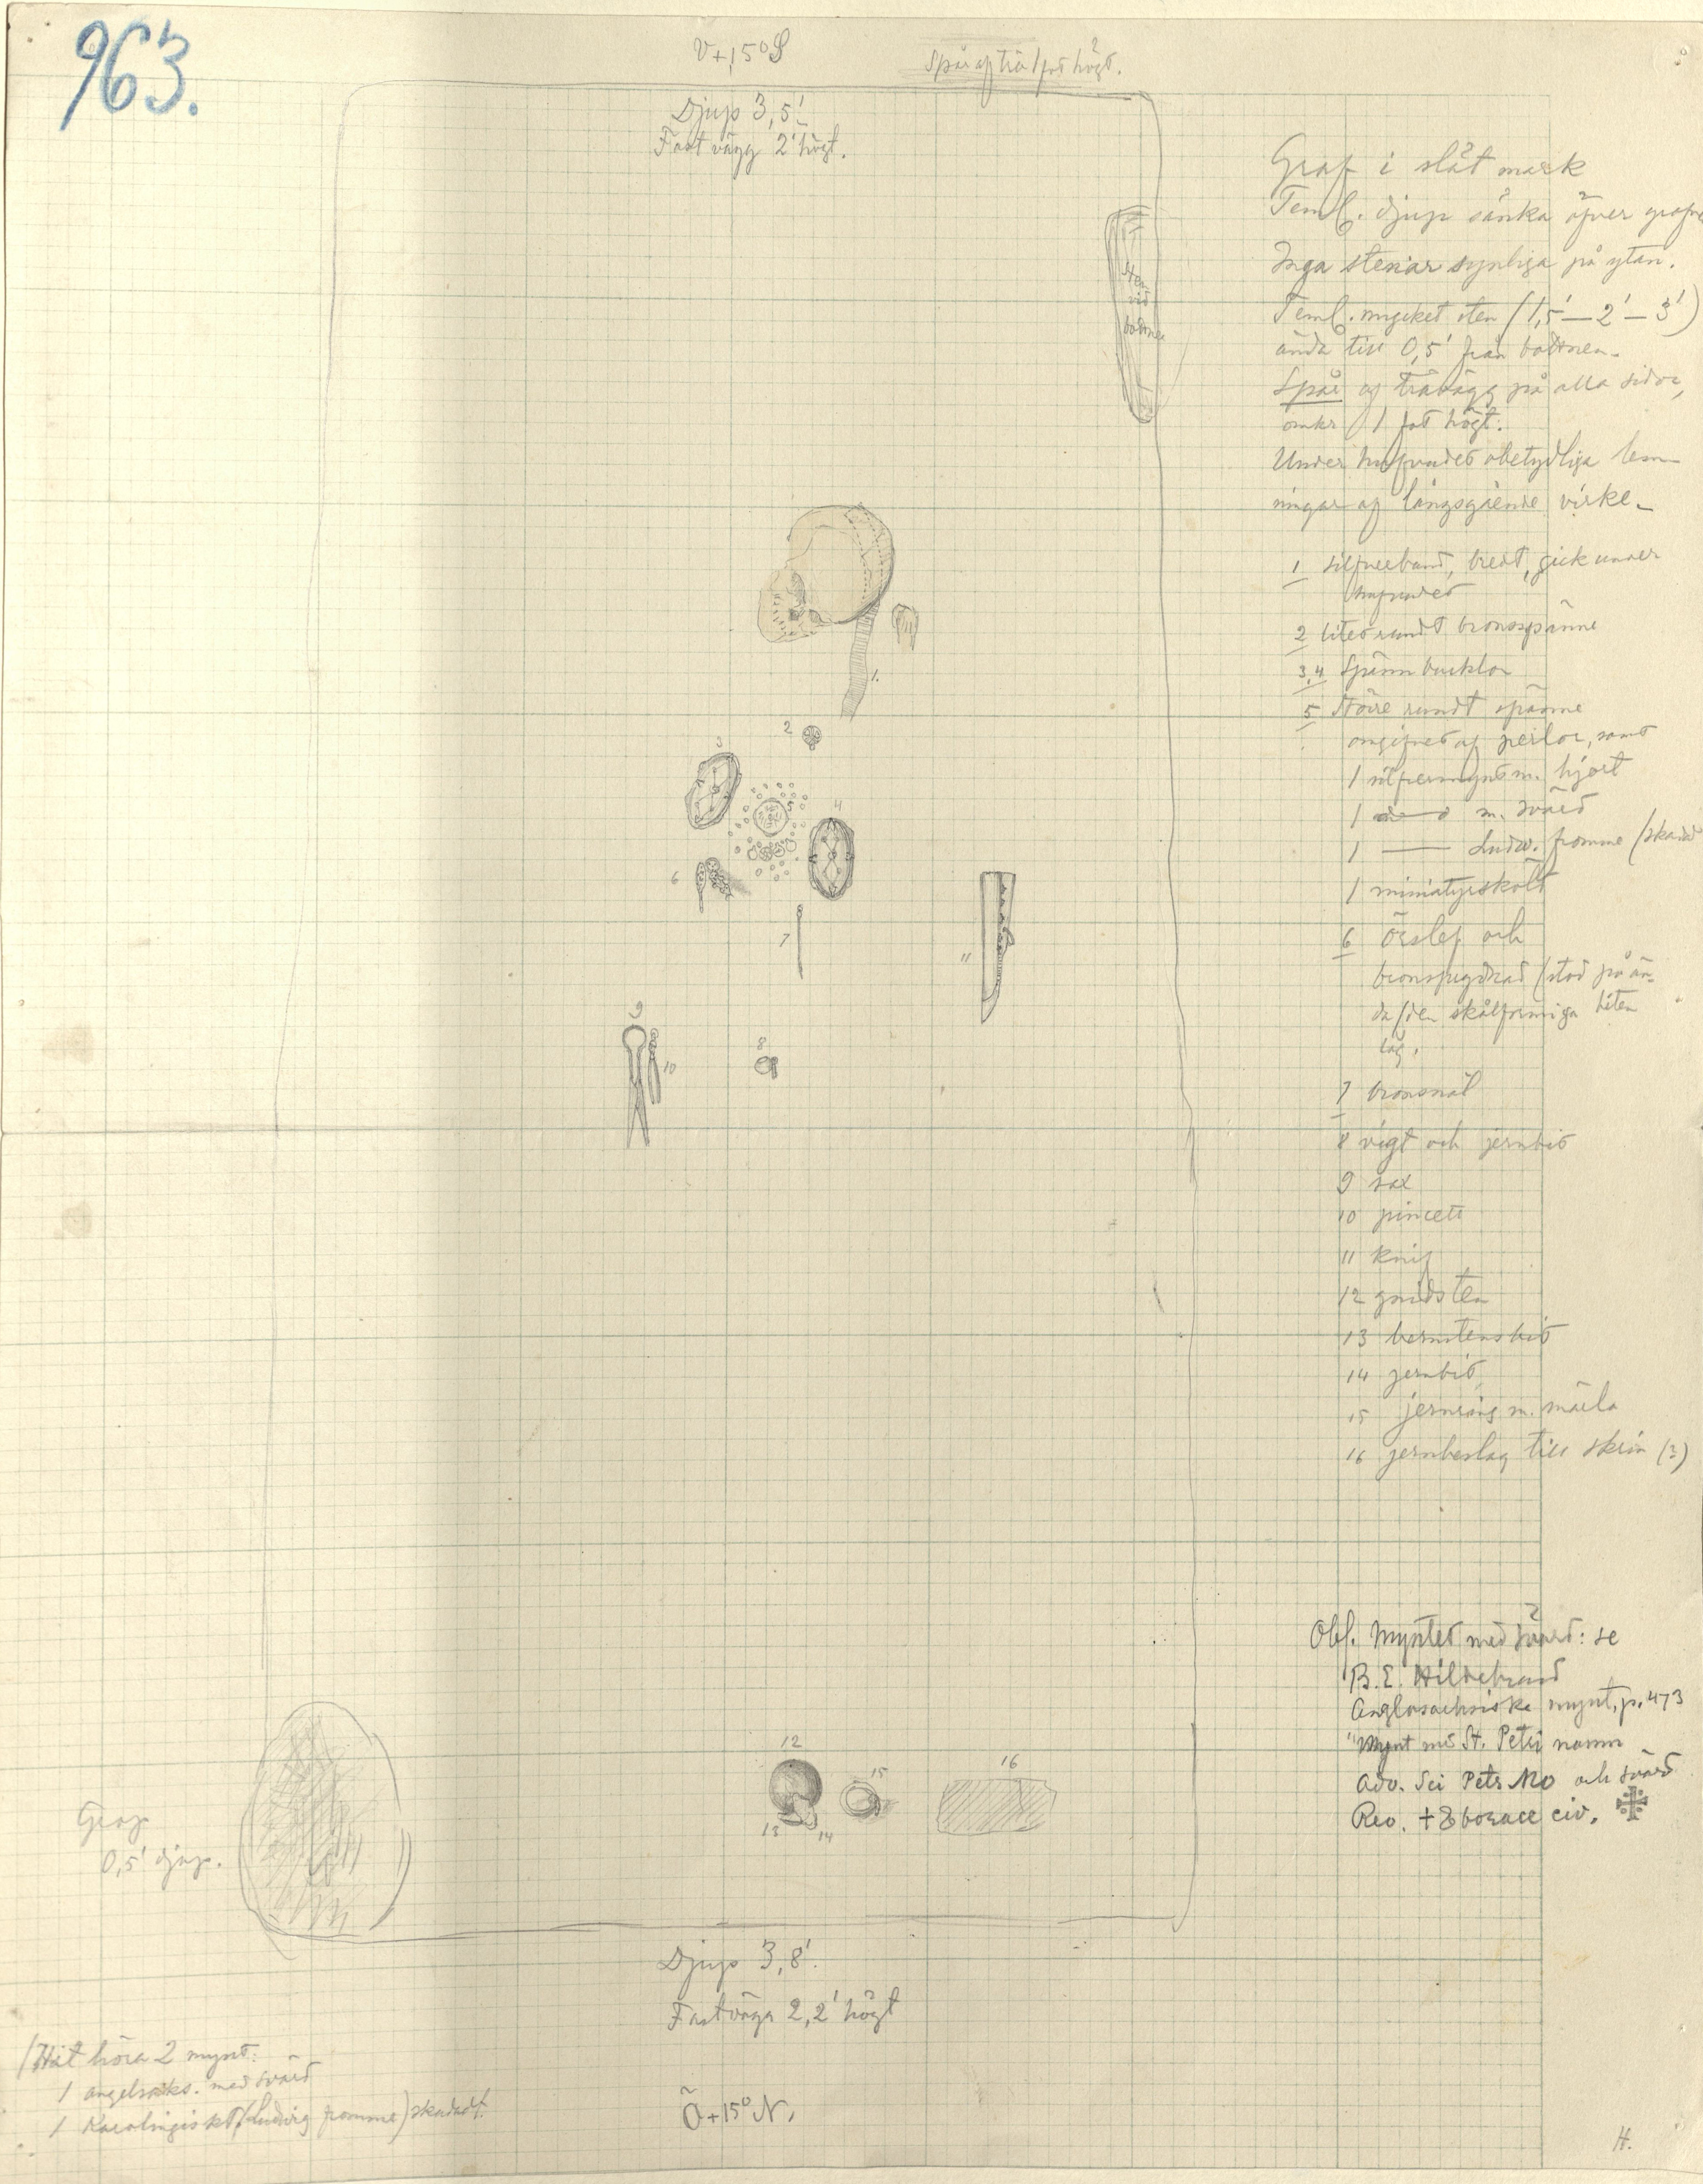 963.
V+15° S
Spår af trä 1 fot högt.
Djup 3,5'
Fast vägg 2' högt.
Graf i slät mark
Teml. djup sänka öfver grafve
Inga stenar synliga på ytan.
Teml. mycket sten (1,5'—2'—3')
ända till 0,5' från bottnen.
Spår af trävägg på alla sidor,
omkr 1 fot högt.
Under hufvudet obetydliga lem-
ningar af långsgående virke.
Sten
vid
bottnen
1 silfverband, bredt, gick under
hufvudet
2 litet rundt bronsspänne
3,4 Spännbucklor
5 större rundt spänne
omgifvet af perlor, samt
1 silfvermynt m. hjort
1 —— m. svärd
1 —— Ludw. fromme (skadad
1 miniatyrsköld
6 örslef och
bronsprydnad (stod på än-
da/den skålformiga biten
låg.
7 bronsnål
8 vigt och jernbit
9 sax
10 pincett
11 knif
12 gnidsten
13 bernstensbit
14 jernbit
15 jernring m. märla
16 jernbeslag till skrin (?)
1.
2
3
5
4
6
7
11
9
8
10
Obs. Myntet med svärd: se
B.E. Hildebrand
Anglosachsiska mynt, p. 473
"Mynt med St. Petri namn
Adv. Sci Petr Mo och svärd
Rev. + Eborace civ.
12
15
16
13
14
Grop
0,5' djup.
Djup 3,8'.
Fast vägg 2,2' högt
(Hit höra 2 mynt:
1 angelsaks. med svärd
1 Karolingiskt (Ludvig fromme) skadadt.
Ö+15° N.
H.